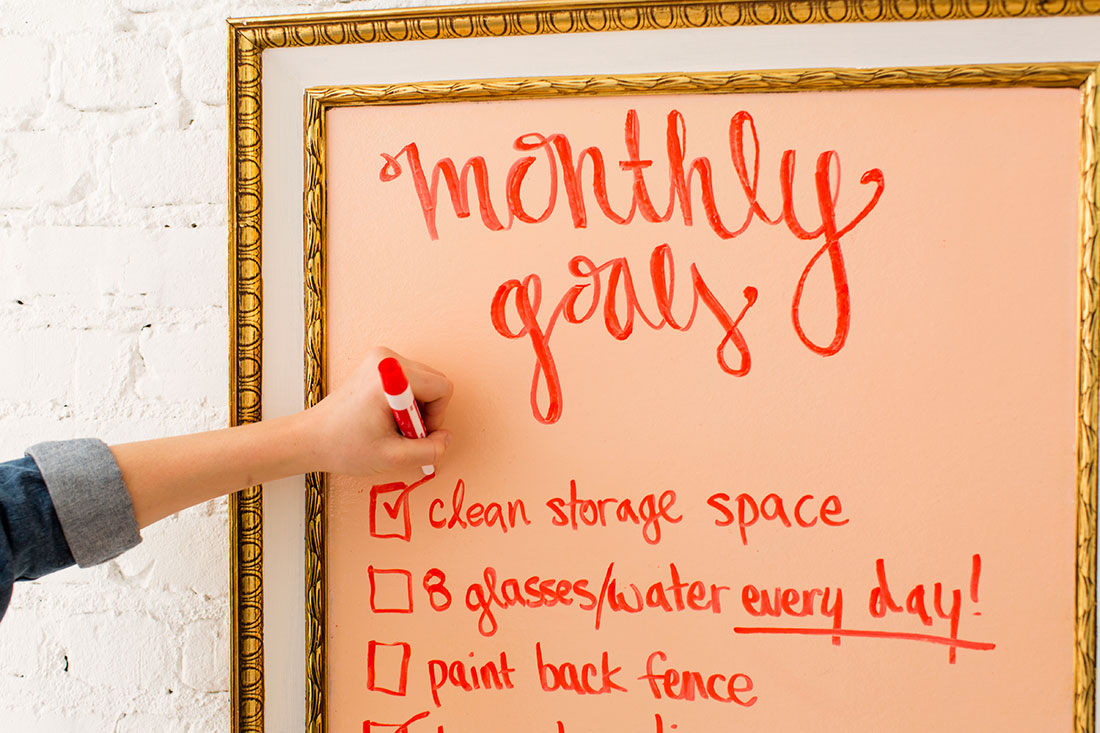 monthly
goals
☑ clean storage space
☐ 8 glasses/water every day!
☐ paint back fence